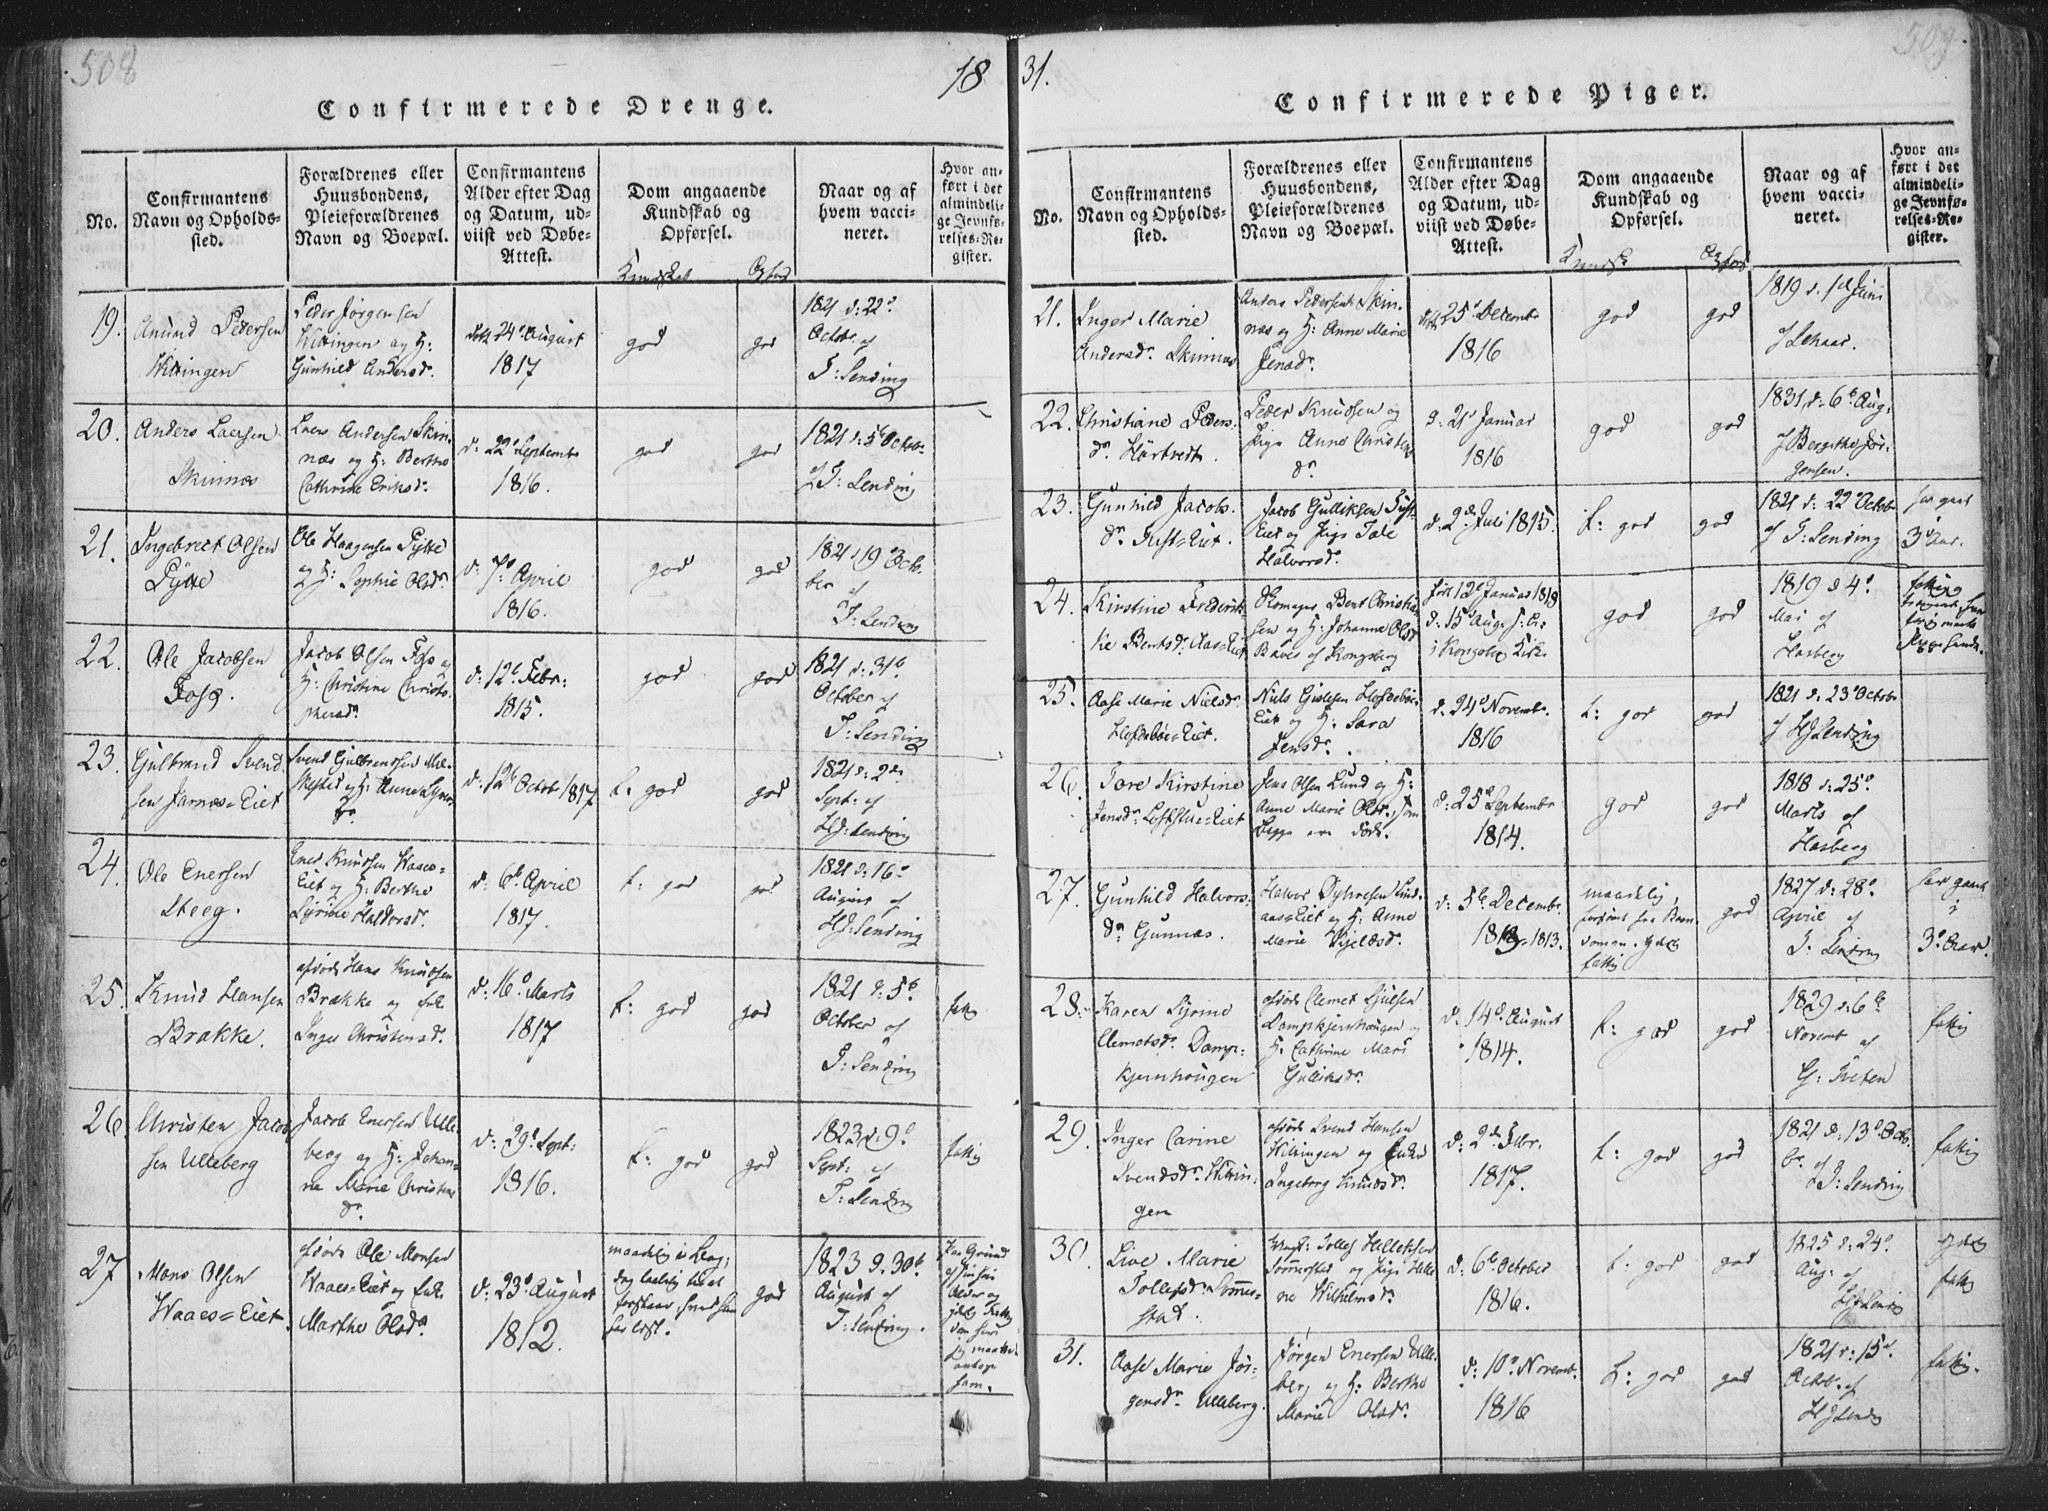 508
18
Confirmerede Drenge.
No.
Confirmantens
Navn og Opholds-
sted.
Forældrenes eller
Huusbondens,
Pleieforældrenes
Navn og Boepæl.
Confirmantens
Alder efter Dag
og Datum, ud-
viist ved Døbe-
Attest.
Dom angaaende
Kundskab og
Opførsel.
Kundskab
Opførs
Naar og af
hvem vacci-
neret.
Hvor an-
ført i det
almindeli-
ge Jevnfø-
relses-Re-
gister.
19.
Anund Pedersen
Wittingen
Peder Jørgensen
Wittingen og H:
Gunhild Andersd.
24de August
1817
god
god
1821 d: 22de
Octobr. af
T: Sending
20.
Anders Larsen
Skinnæs
Lars Andersen Skin-
næs og H: Berthe
Cathrine Eriksd.
d: 22de Septembr
1816.
god
god
1821 d: 5te Octobr.
af T: Sending
21.
Ingebrect Olsen
Pytte
Ole Haagensen Pytte
og H: Sophie Olsd.
d: 7de April
1816.
god
god
1821 d 19de Octo-
ber
af
T: Sending
22.
Ole Jacobsen
Foss.
Jacob Olsen Foss og
H: Christine Christo-
phersd.
d: 12te Febr:
1815.
god
god
1821 d: 31te
October af
T: Sending
23.
Gulbrand Svend-
sen Jarnæs=Eiet
Svend Gulbrandsen
og H: Anne
d: 12te Octobr 1817
t: god
god
1821 d: 2den
Sept: af
HJ: Sending
24.
Ole Enersen
Steeg.
Ener Knudsen Waaes=
Eiet og H: Berthe
Sirine Halvorsd.
d: 6te April
1817.
t: god
god
1821 d: 16de
August af
HJ: Sending
25.
Knud Hansen
Brække.
afdøde Hans Knudsen
Brække og enk.
Inger Christensd.
d: 16de Marts
1817
t: god
god
1821 d: 5te
October af
T: Sending
fattig
26.
Christen Jacob-
sen Ulleberg
Jacob Enersen Ulle-
berg og H: Johan-
ne Marie Christens
dr.
d: 29de Sept:
1816.
t: god
god
1823 d: 9de
Sept: af
T: Sending
fattig
27
Mons Olsen
Waaes=Eiet.
afdøde Ole Monsen
Waaes=Eiet og enk.
Marthe Olsd.
d: 23de August
1812.
maadelig i Læs;
dog taalelig til at
forstaae, hvad han
har læst.
god
1823 d. 30te
August af
T: Sending.
Paa Grund
af sin
Alder og
yderl. Fattig
dom
antage
ham.
509
31.
Confirmerede Piger.
No.
Confirmantens
Navn og Opholds-
sted.
Forældrenes eller
Huusbondens,
Pleieforældrenes
Navn og Boepæl.
Confirmantens
Alder efter Dag
og Datum, ud-
viist ved Døbe-
Attest.
Dom angaaende
Kundskab og
Opførsel.
Kundsk
Opførs
Naar og af
hvem vacci-
neret.
Hvor an-
ført i det
almindeli-
ge Jevnfø-
relses-Re-
gister.
21.
Inger Marie
Andersdr. Skinnæs
Anders Pedersen Skin-
næs og H: Anne Marie
Jensdr.
25de Decembr
1816
god
god
1819 d. 1ste Juni
af Schaar.
22.
Christiane Peders-
dr. Hørtvedt.
Peder Knudsen og
Pige Anne Christens
dr.
d: 21de Januar
1816
god
god
1831 d: 6te Aug:
af Bergithe Jør-
gensen.
23.
Gunhild Jacobs-
dr. Tufst=Eiet.
Jacob Gulliksen Tufst-
Eiet og Pige Tale
Halvorsd.
d: 2den Juli 1815.
t: god
god
1821 d: 22de Octobr
af T: Sending
har gaaet
3de Aar.
24.
Kirstine Frederik-
ke Bentsdr. Aas=Eiet
Skomager Bent Christian-
sen og H: Johanne Olsdr
Baves af Kongsberg
født 12te Januar 1818
d. 15de Aug. s. A.
i Kongsberg Kirke
god
god
1819 d 4de
Mai af
Hasberg
fattig
25.
Aase Marie Nielsdr.
Hofsdsbøe=Eiet.
Niels Gulesen Hofdsbøe-
Eiet og H: Sara
Jensdr.
d: 24de Novembr.
1816
t: god
god
1821 d: 23de Octobr
af HJ Sending
26.
Tore Kirstine
Jensdr. Loftstue=Eiet
Jens Olsen Lund og H:
Anne Marie Olsdr., som
begge ere døde.
d: 25de Septembr
1814.
god
god
1818 d: 25de
Marts af
Hasberg
27.
Gunhild Halvors-
dr. Gunnæs.
Halvor
aas=Eiet og H: Anne
Marie Kjeldsd.
d: 5te Decembr.
1813.
maadelig,
forsømt fra Barn-
dommen. yderl.
fattig
god
1827 d: 28de
April af
T: Sending
har gaaet
i
3de Aar.
28.
Karen Sirine
Clemetsdr. Damp-
kjernhougen
afdøde Clemet Sjulsen
Dampkjernhougen og
H: Cathrine Marie
Gulliksdr.
d: 14de August
1814.
t: god
god
1829 d: 6te
Novembr af
G: Treten
fattig
29.
Inger Carine
Svendsdr. Wittin-
gen
afdøde Svend Hansen
Wittingen og Enke
Ingeborg Knudsd.
d: 2den Febr.
1817.
t: god
god
1821 d: 13de Octo-
br. af T: Sending
fattig
30.
Live Marie
Tollefsdr. Sommer-
stad.
Tollef Helleksen
Sommerstad og Pige Helle-
ne Wilhelmsd.
d: 6te October
1816.
t: god
god
1825 d: 24de
Aug: af
HJ Sending
yderl.
fattig
31.
Aase Marie Jør-
gensdr. Ulleberg.
Jørgen Enersen Ulle-
berg og H: Berthe
Marie Olsdr.
d: 10de Novemb.
1816
t: god
god
1821 d: 15de
Octob. af
HJ Sending
fattig.